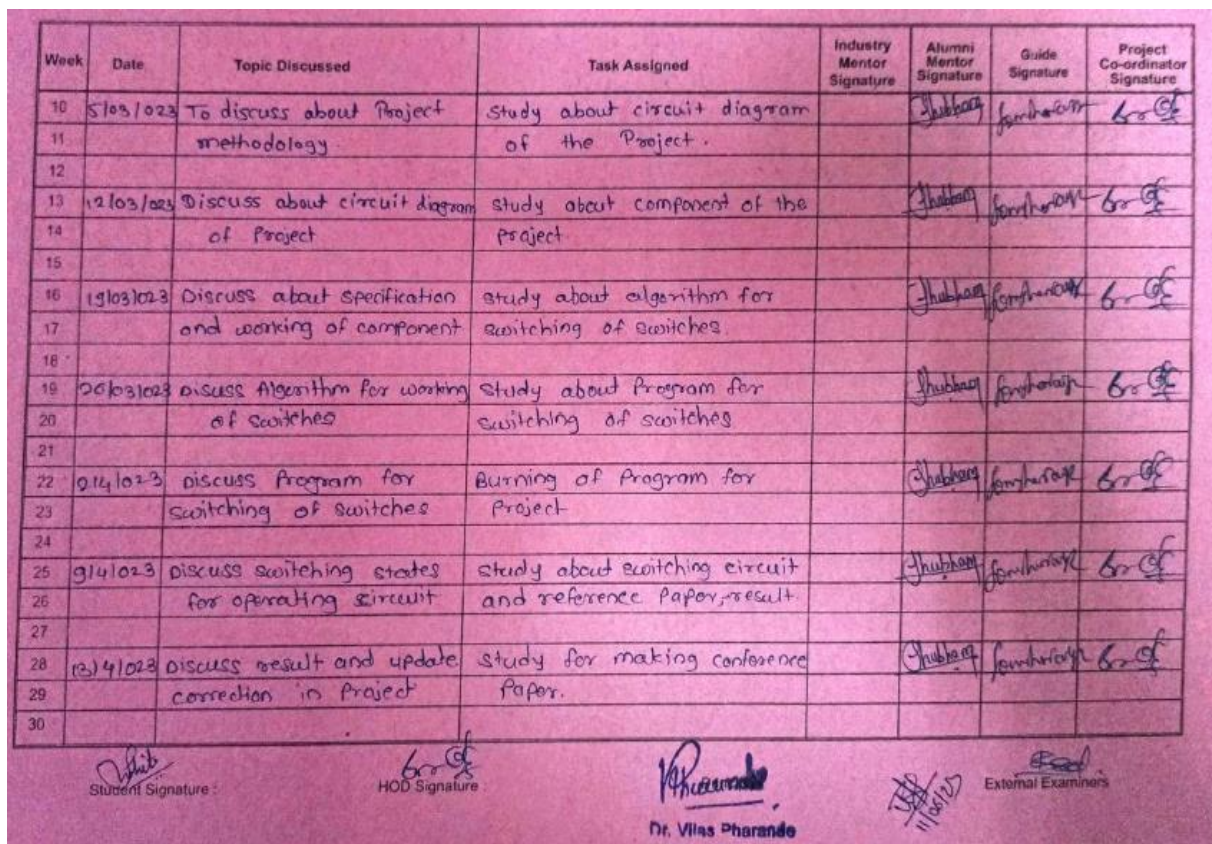 Week Date Topic Discussed Task Assigned Industry Mentor Signature Alumni Mentor Signature Guide Signature Project Co-ordinator Signature
10 5/03/023 To discuss about Project study about circuit diagram Shubham
11 methodology. of the Project.
12
13 12/03/023 Discuss about circuit diagram study about component of the Shubham
14 of Project project.
15
16 19/03/023 Discuss about specification study about algorithm for Shubham
17 and working of component switching of switches.
18
19 26/03/023 Disuss Algorithm for working study about Program for Shubham
20 of switches switching of switches
21
22 2/4/023 Discuss Program for Burning of Program for Shubham
23 switching of switches Project
24
25 9/4/023 Discuss switching states study about switching circuit Shubham
26 for operating circuit and reference Paper, result.
27
28 13/4/023 Discuss result and update study for making conference Shubham
29 correction in Project Paper.
30
Student Signature : HOD Signature External Examiners
Dr. Vilas Pharande